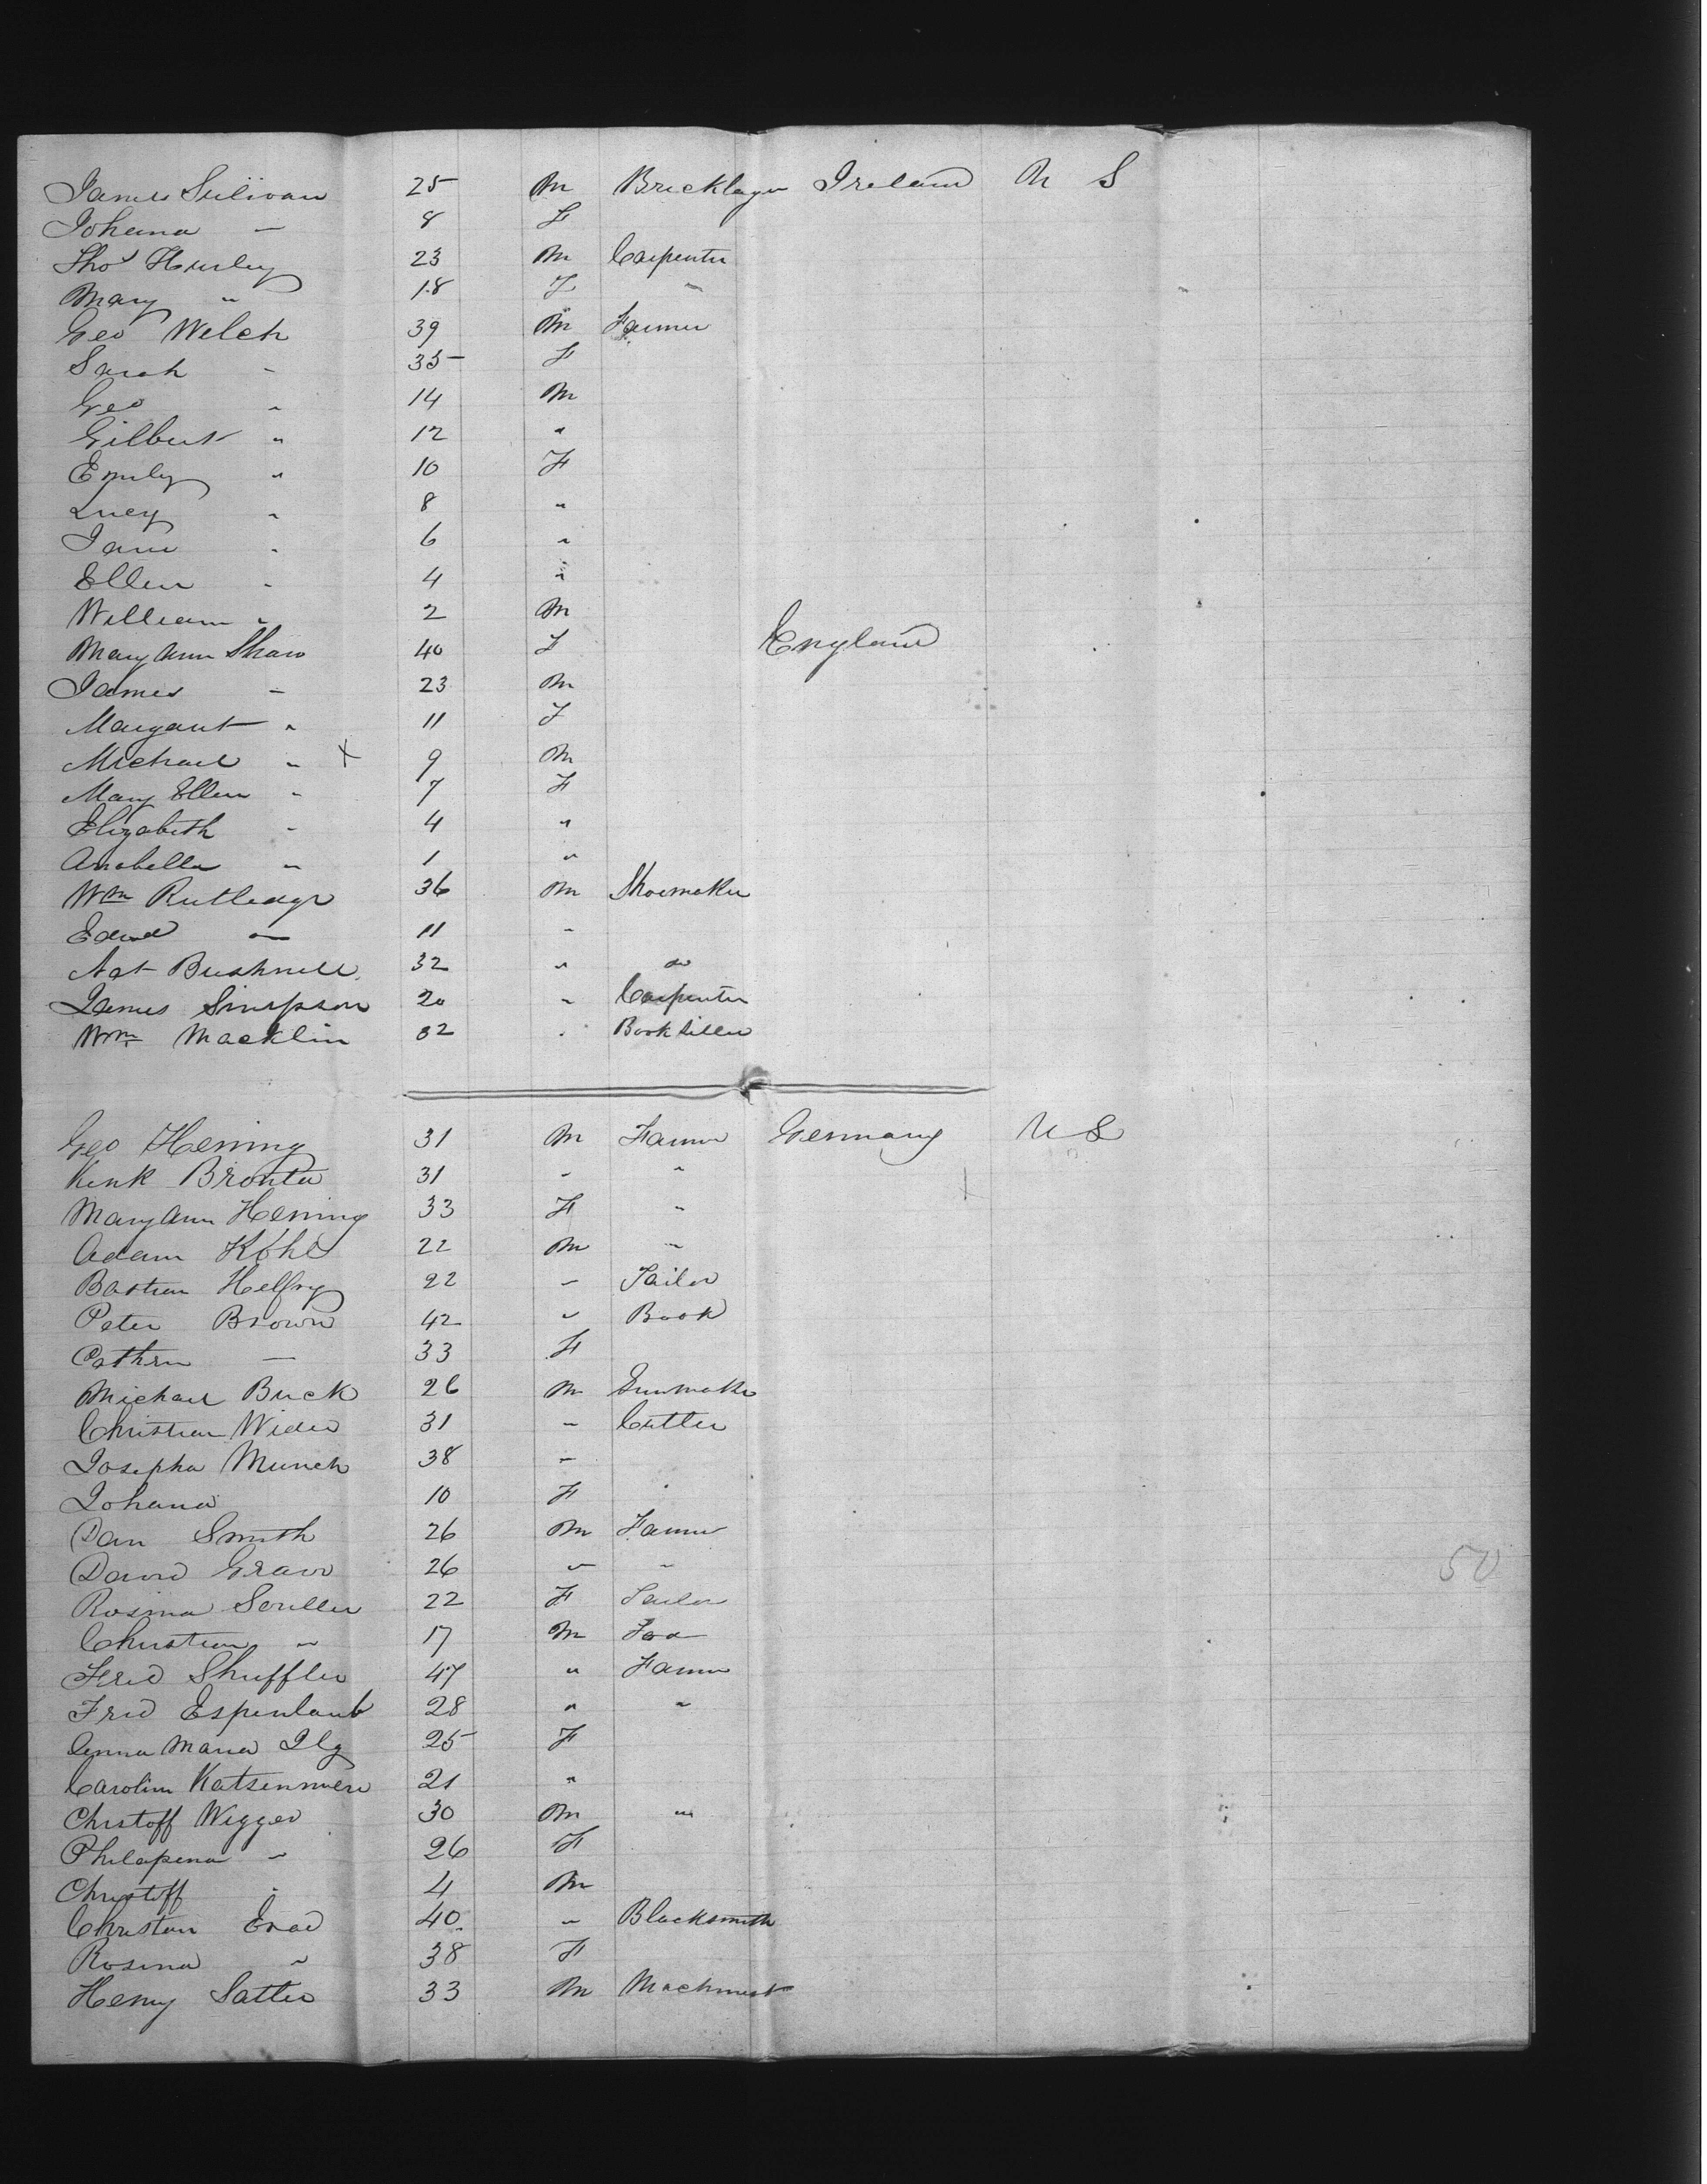 James Sulivan 25 M Bricklayer Ireland U S
Johana — 8 F
Thos Hurley 23 M Carpenter
Mary " 18 F "
Geo Welch 39 M Farmer
Sarah " 35 F
Geo " 14 M
Gilbert " 12 "
Emily " 10 F
Lucy " 8 "
Jane " 6 "
Ellen " 4 "
William " 2 M
Mary Ann Shaw 40 F England
James — 23 M
Margaret " 11 F
Michael " X 9 M
Mary Ellen " 7 F
Elizabeth " 4 "
Anabella " 1 "
Wm Rutledge 36 M Shoemaker
Edwd — 11 "
Nat Bushnell 32 " do
James Simpson 20 " Carpenter
Wm Macklin 32 " Bookseller
Geo Hening 31 M Farmer Germany U S
Kink 31 " "
Mary Ann Hening 33 F "
Adam Kohl 22 M "
Bastian Helfry 22 " Tailor
Peter Brown 42 " Book
Cathrn — 33 F
Michael Buck 26 M Gunmaker
Christian Wider 31 " Cutler
Josepha Munch 38 "
Johana 10 F
Dan Smith 26 M Farmer
David 26 " "
Rosina 22 F Tailor
Christian " 17 M
Fred Shuffler 47 " Farmer
Fred Espenlaub 28 " "
Anna Maria Ilg 25 F
Carolin 21 "
Christoff Wigger 30 M "
Philapena " 26 F
Christoff " 4 M
Christan 40 " Blacksmith
Rosina " 38 F
Henry Satter 33 M Machinist
50